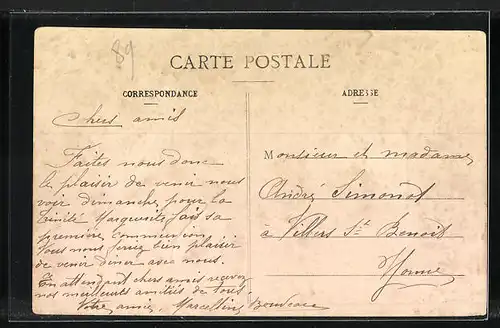 89
CARTE POSTALE
CORRESPONDANCE
ADRESSE
Chers amis
Faites nous donc
le plaisir de venir nous
voir dimanche pour la
trinité Marguerite fait sa
première communion
vous nous feriez bien plaisir
de venir diner avec nous.
En attendant chers amis recevez
nos meilleures amitiés de tous.
Votre amie Marcelline
Monsieur et madame
André Simonot
à Villiers St Benoit
Yonne